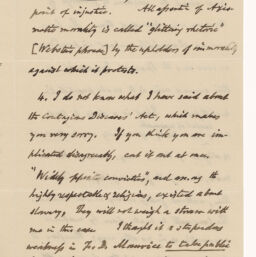 point of injustice. All
matic morality is called "glittering rhetoric"
[Webster's phrase] by the upholders of immorality
against which it protests.
4. I do not know what I have said about
the Contagious Diseases' Acts, which makes
you very sorry. If you think you are im-
plicated disagreeably, cut it out at once.
"Widely opposite convictions", and among the
highly respectable & religious, existed about
slavery. They will not weigh a straw with
me in this case. I thought it a stupendous
weakness in F. D. Maurice to take public